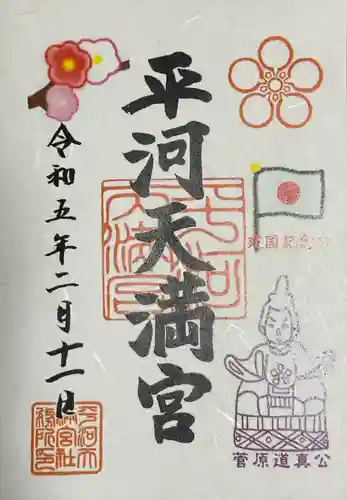 平河天満宮
建国記念日
菅原道真公
令和五年二月十一日
平河天満宮
平河天
満宮社
務所印